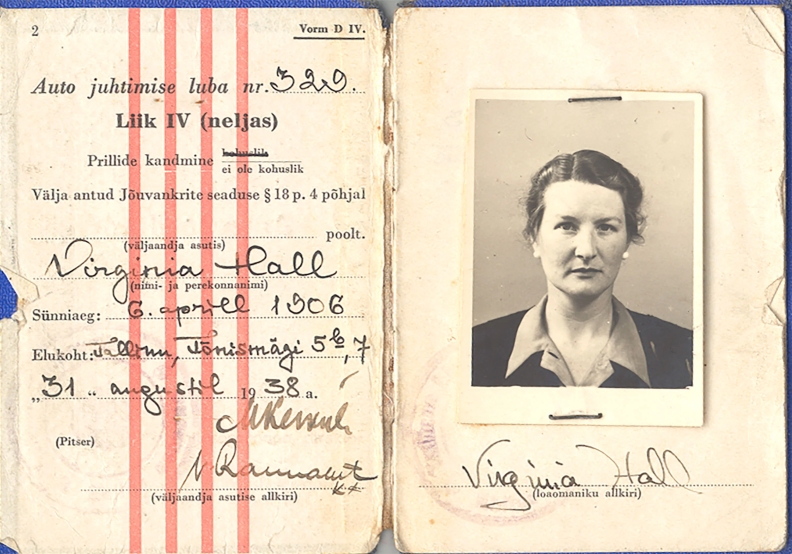 2 Vorm D IV.
Auto juhtimise luba nr. 329.
Liik IV (neljas)
Prillide kandmine kohuslik
ei ole kohuslik
Välja antud Jõuvankrite seaduse § 18 p. 4 põhjal
poolt.
(väljaandja asutis)
Virginia Hall
(nimi- ja perekonnanimi)
Sünniaeg: 6. aprill 1906
Elukoht: Tallinn, Tõnismägi 5b, 7
„31" augustil 1938 a.
(Pitser)
(väljaandja asutise allkiri)
Virginia Hall
(loaomaniku allkiri)